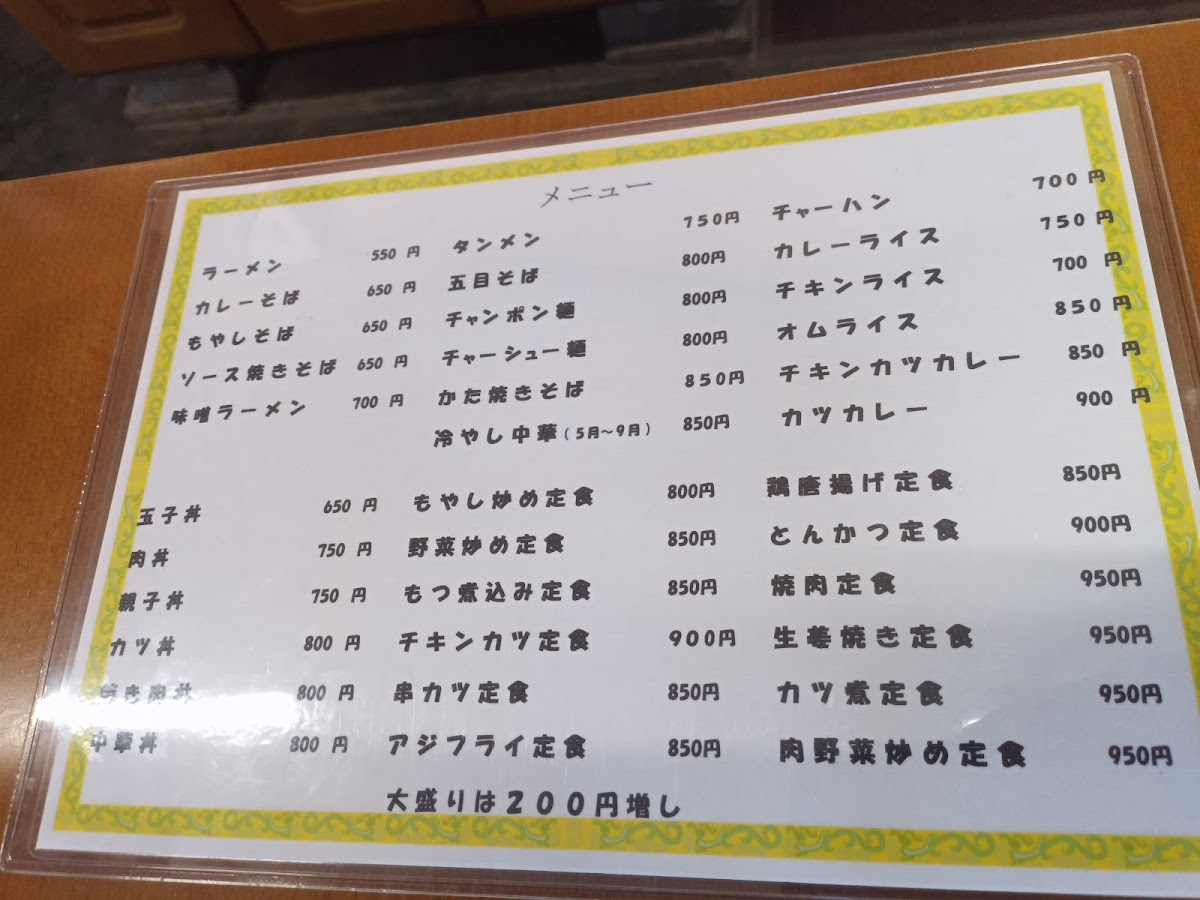 メニュー
ラーメン 550 円
カレーそば 650 円
もやしそば 650 円
ソース焼きそば 650 円
味噌ラーメン 700 円
タンメン 750円
五目そば 800円
チャンポン麺 800円
チャーシュー麺 800円
かた焼きそば 850円
冷やし中華(5月～9月) 850円
チャーハン 700円
カレーライス 750円
チキンライス 700 円
オムライス 850円
チキンカツカレー 850 円
カツカレー 900 円
玉子丼 650 円
肉丼 750 円
親子丼 750 円
カツ丼 800 円
焼き肉丼 800 円
中華丼 800 円
もやし炒め定食 800円
野菜炒め定食 850円
もつ煮込み定食 850円
チキンカツ定食 900円
串カツ定食 850円
アジフライ定食 850円
鶏唐揚げ定食 850円
とんかつ定食 900円
焼肉定食 950円
生姜焼き定食 950円
カツ煮定食 950円
肉野菜炒め定食 950円
大盛りは200円増し